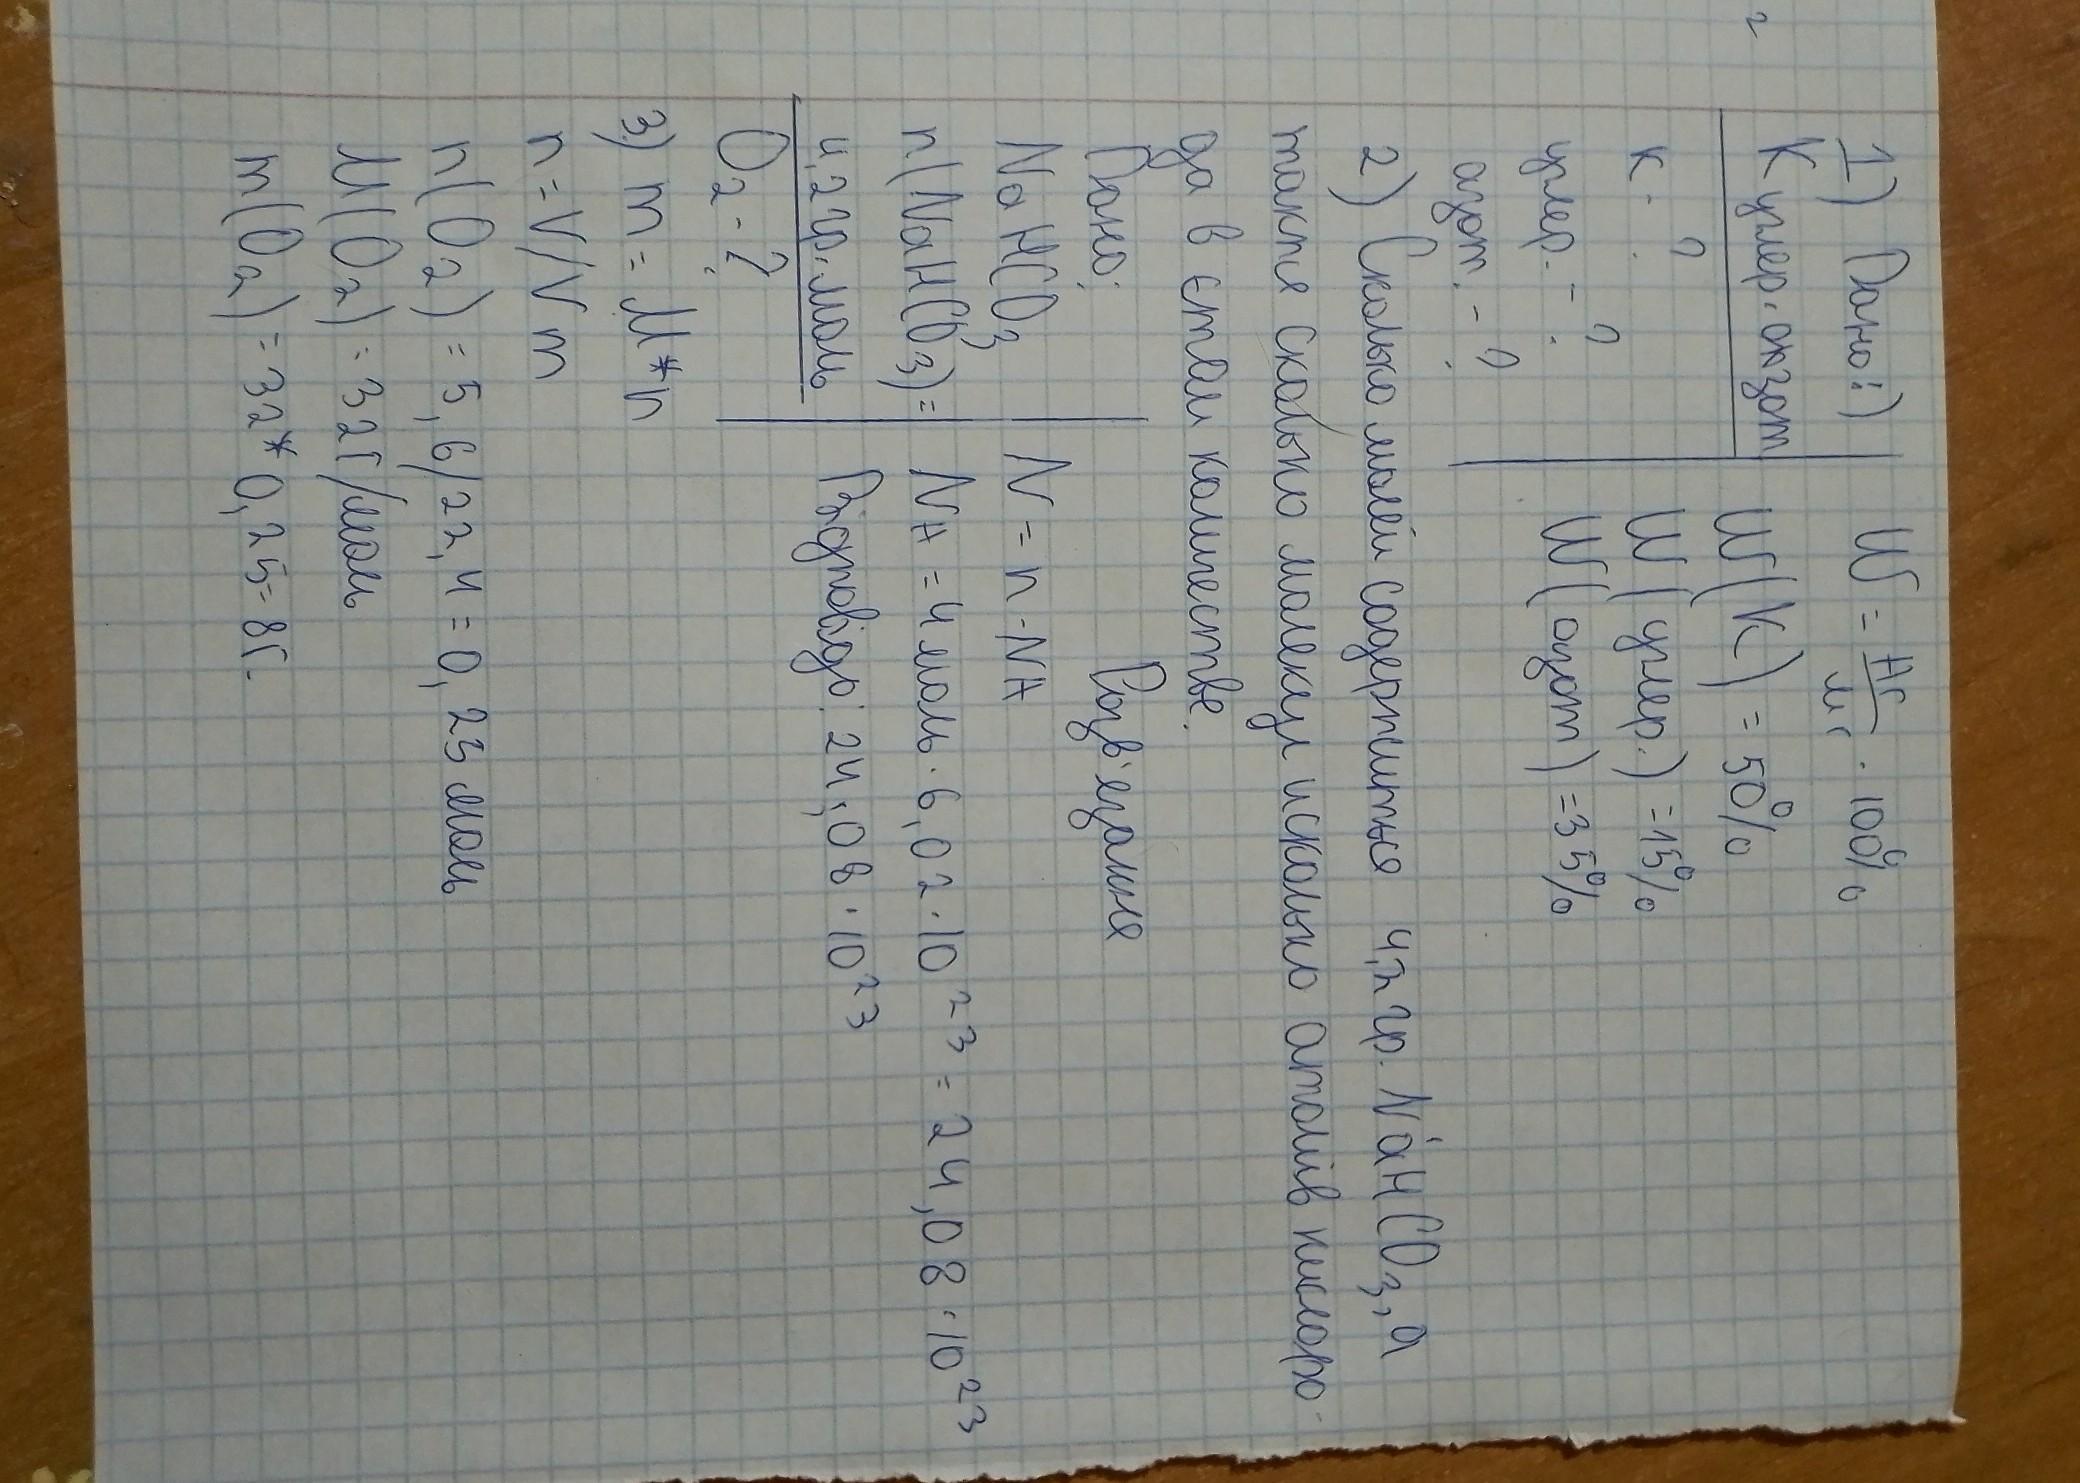 2
1) Дано:)
К углер. окзот
к - ?
углер. - ?
азот. - ?
W = Ar/Mr · 100%
W(К) = 50%
W(углер.) = 15%
W(озот) = 35%
2) Сколько молей содержиться 4,2 гр. NaHCO3, а
также сколько молекул исколько атомів кислоро-
да в єтом количестве.
Дано:
NaHCO3
n(NaHCO3) =
4,2 гр. моль
O2 - ?
Розв'язання
N = n · NA
NA = 4 моль · 6,02 · 10^23 = 24,08 · 10^23
Відповідь: 24,08 · 10^23
3) m = M*n
n = V/Vm
n(O2) = 5,6/22,4 = 0,25 моль
M(O2) = 32г/моль
m(O2) = 32*0,25 = 8г.